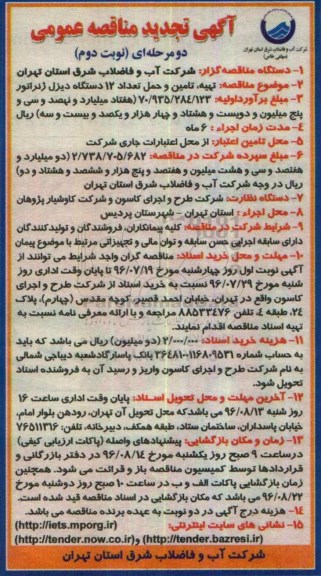 شرکت آب و فاضلاب شرق استان تهران
(سهامی خاص)
آگهی تجدید مناقصه عمومی
دو مرحله‌ای (نوبت دوم)
۱- دستگاه مناقصه‌گزار: شرکت آب و فاضلاب شرق استان تهران
۲- موضوع مناقصه: تهیه، تامین و حمل تعداد ۱۲ دستگاه دیزل ژنراتور
۳- مبلغ برآورداولیه: ۷۰/۹۳۵/۲۸۴/۱۲۳ (هفتاد میلیارد و نهصد و سی و
پنج میلیون و دویست و هشتاد و چهار هزار و یکصد و بیست و سه) ریال
۴- مدت زمان اجراء : ۶ ماه
۵- محل تامین اعتبار: از محل اعتبارات جاری شرکت
۶- مبلغ سپرده شرکت در مناقصه: ۲/۷۳۸/۷۰۵/۶۸۲ (دو میلیارد و
هفتصد و سی و هشت میلیون و هفتصد و پنج هزار و ششصد و هشتاد و دو)
ریال در وجه شرکت آب و فاضلاب شرق استان تهران
۷- دستگاه نظارت: شرکت طرح و اجرای کاسون و شرکت کاوشیار پژوهان
۸- محل اجراء : استان تهران - شهرستان پردیس
۹- شرایط شرکت در مناقصه: کلیه پیمانکاران، فروشندگان و تولیدکنندگان
دارای سابقه اجرایی حسن سابقه و توان مالی و تجهیزاتی مرتبط با موضوع پیمان
۱۰- مهلت و محل خرید اسناد: مناقصه گران واجد شرایط می توانند از
آگهی نوبت اول روز چهارشنبه مورخ ۹۶/۰۷/۱۹ تا پایان وقت اداری روز
شنبه مورخ ۹۶/۰۷/۲۹ نسبت به خرید اسناد از شرکت طرح و اجرای
کاسون واقع در تهران، خیابان احمد قصیر، کوچه مقدس (چهارم)، پلاک
۲۴، طبقه ۴، تلفن ۸۸۵۳۳۴۷۶ مراجعه و با ارائه معرفی نامه نسبت به
تهیه اسناد مناقصه اقدام نمایند.
۱۱- هزینه خرید اسناد: ۲/۰۰۰/۰۰۰ (دو میلیون) ریال می باشد که باید
به حساب شماره بانک پاسارگادشعبه دیباجی شمالی
به نام شرکت طرح و اجرای کاسون واریز و رسید آن به فروشنده اسناد
تحویل شود.
۱۲- آخرین مهلت و محل تحویل اسناد: پایان وقت اداری ساعت ۱۶
روز شنبه ۹۶/۰۸/۱۳ می باشدکه محل تحویل آن تهران، رودهن بلوار امام،
خیابان پاسداران، ساختمان ستاد، طبقه همکف، دبیرخانه، تلفن: ۷۶۵۱۱۳۱۶
۱۳- زمان و مکان بازگشایی: پیشنهادهای واصله (پاکات ارزیابی کیفی)
درساعت ۹ صبح روز یکشنبه مورخ ۹۶/۰۸/۱۴ در دفتر بازرگانی و
قراردادها توسط کمیسیون مناقصه باز و قرائت می شود. همچنین
زمان بازگشایی پاکات الف و ب در ساعت ۱۰ صبح روز دوشنبه مورخ
۹۶/۰۸/۲۲ می باشد که مکان بازگشایی در اسناد مناقصه قید شده است.
۱۴- هزینه درج آگهی در دو نوبت به عهده برنده مناقصه می باشد.
۱۵- نشانی های سایت اینترنتی: (http://iets.mporg.ir)
(http://tender.bazresi.ir) و (http://tender.now.co.ir)
شرکت آب و فاضلاب شرق استان تهران